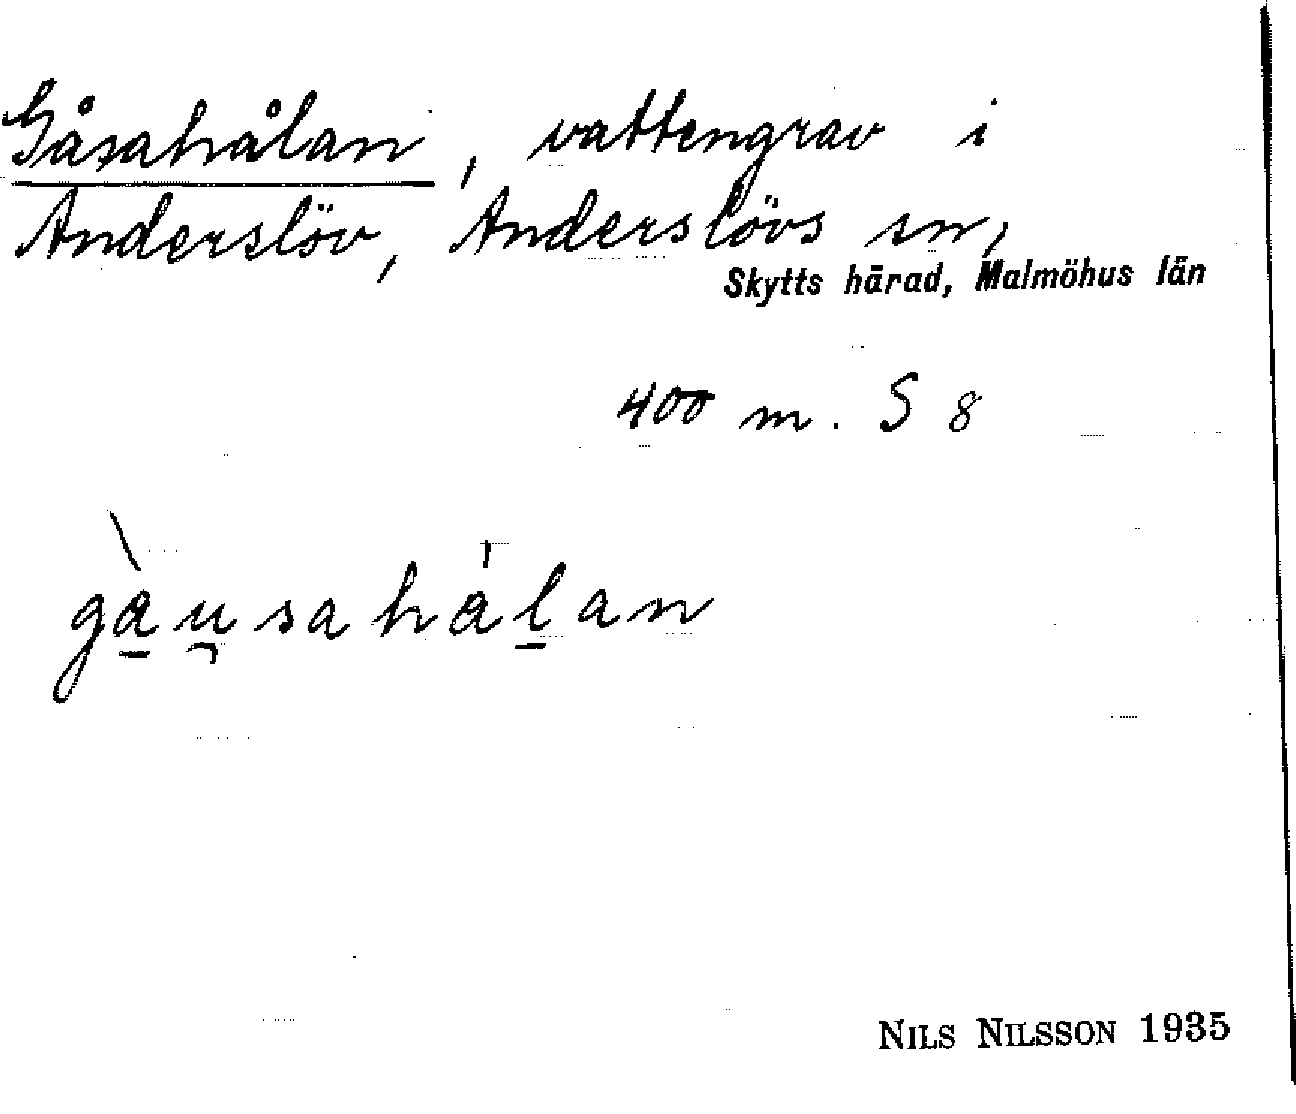 Gåsahålan, vattengrav i
Anderslöv, Anderslövs sn,
Skytts härad, Malmöhus län
400 m. S 8
gàu̯sahålan
NILS NILSSON 1935